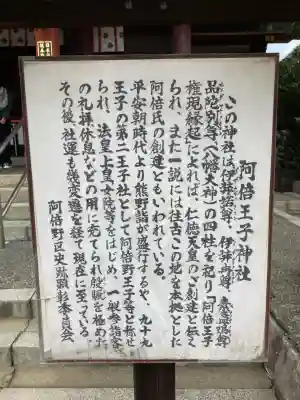 阿倍王子神社
この神社は伊弉諾尊、伊弉冉尊、素盞嗚尊
品陀別尊(八幡大神)の四柱を祀り「阿倍王子
権現縁起」によれば、仁徳天皇のご創建と伝え
られ、また一説には往古この地を本拠とした
阿倍氏の創建ともいわれている。
平安朝時代より熊野詣が盛行するや、九十九
王子の第二王子社として阿倍野王子等と称せ
られ、法皇上皇女院等をはじめ、一般参詣客
の礼拝休息などの用に充てられ殷賑を極めた
その後社運も幾変遷を経て現在に至っている。
阿倍野区史跡顕彰委員会